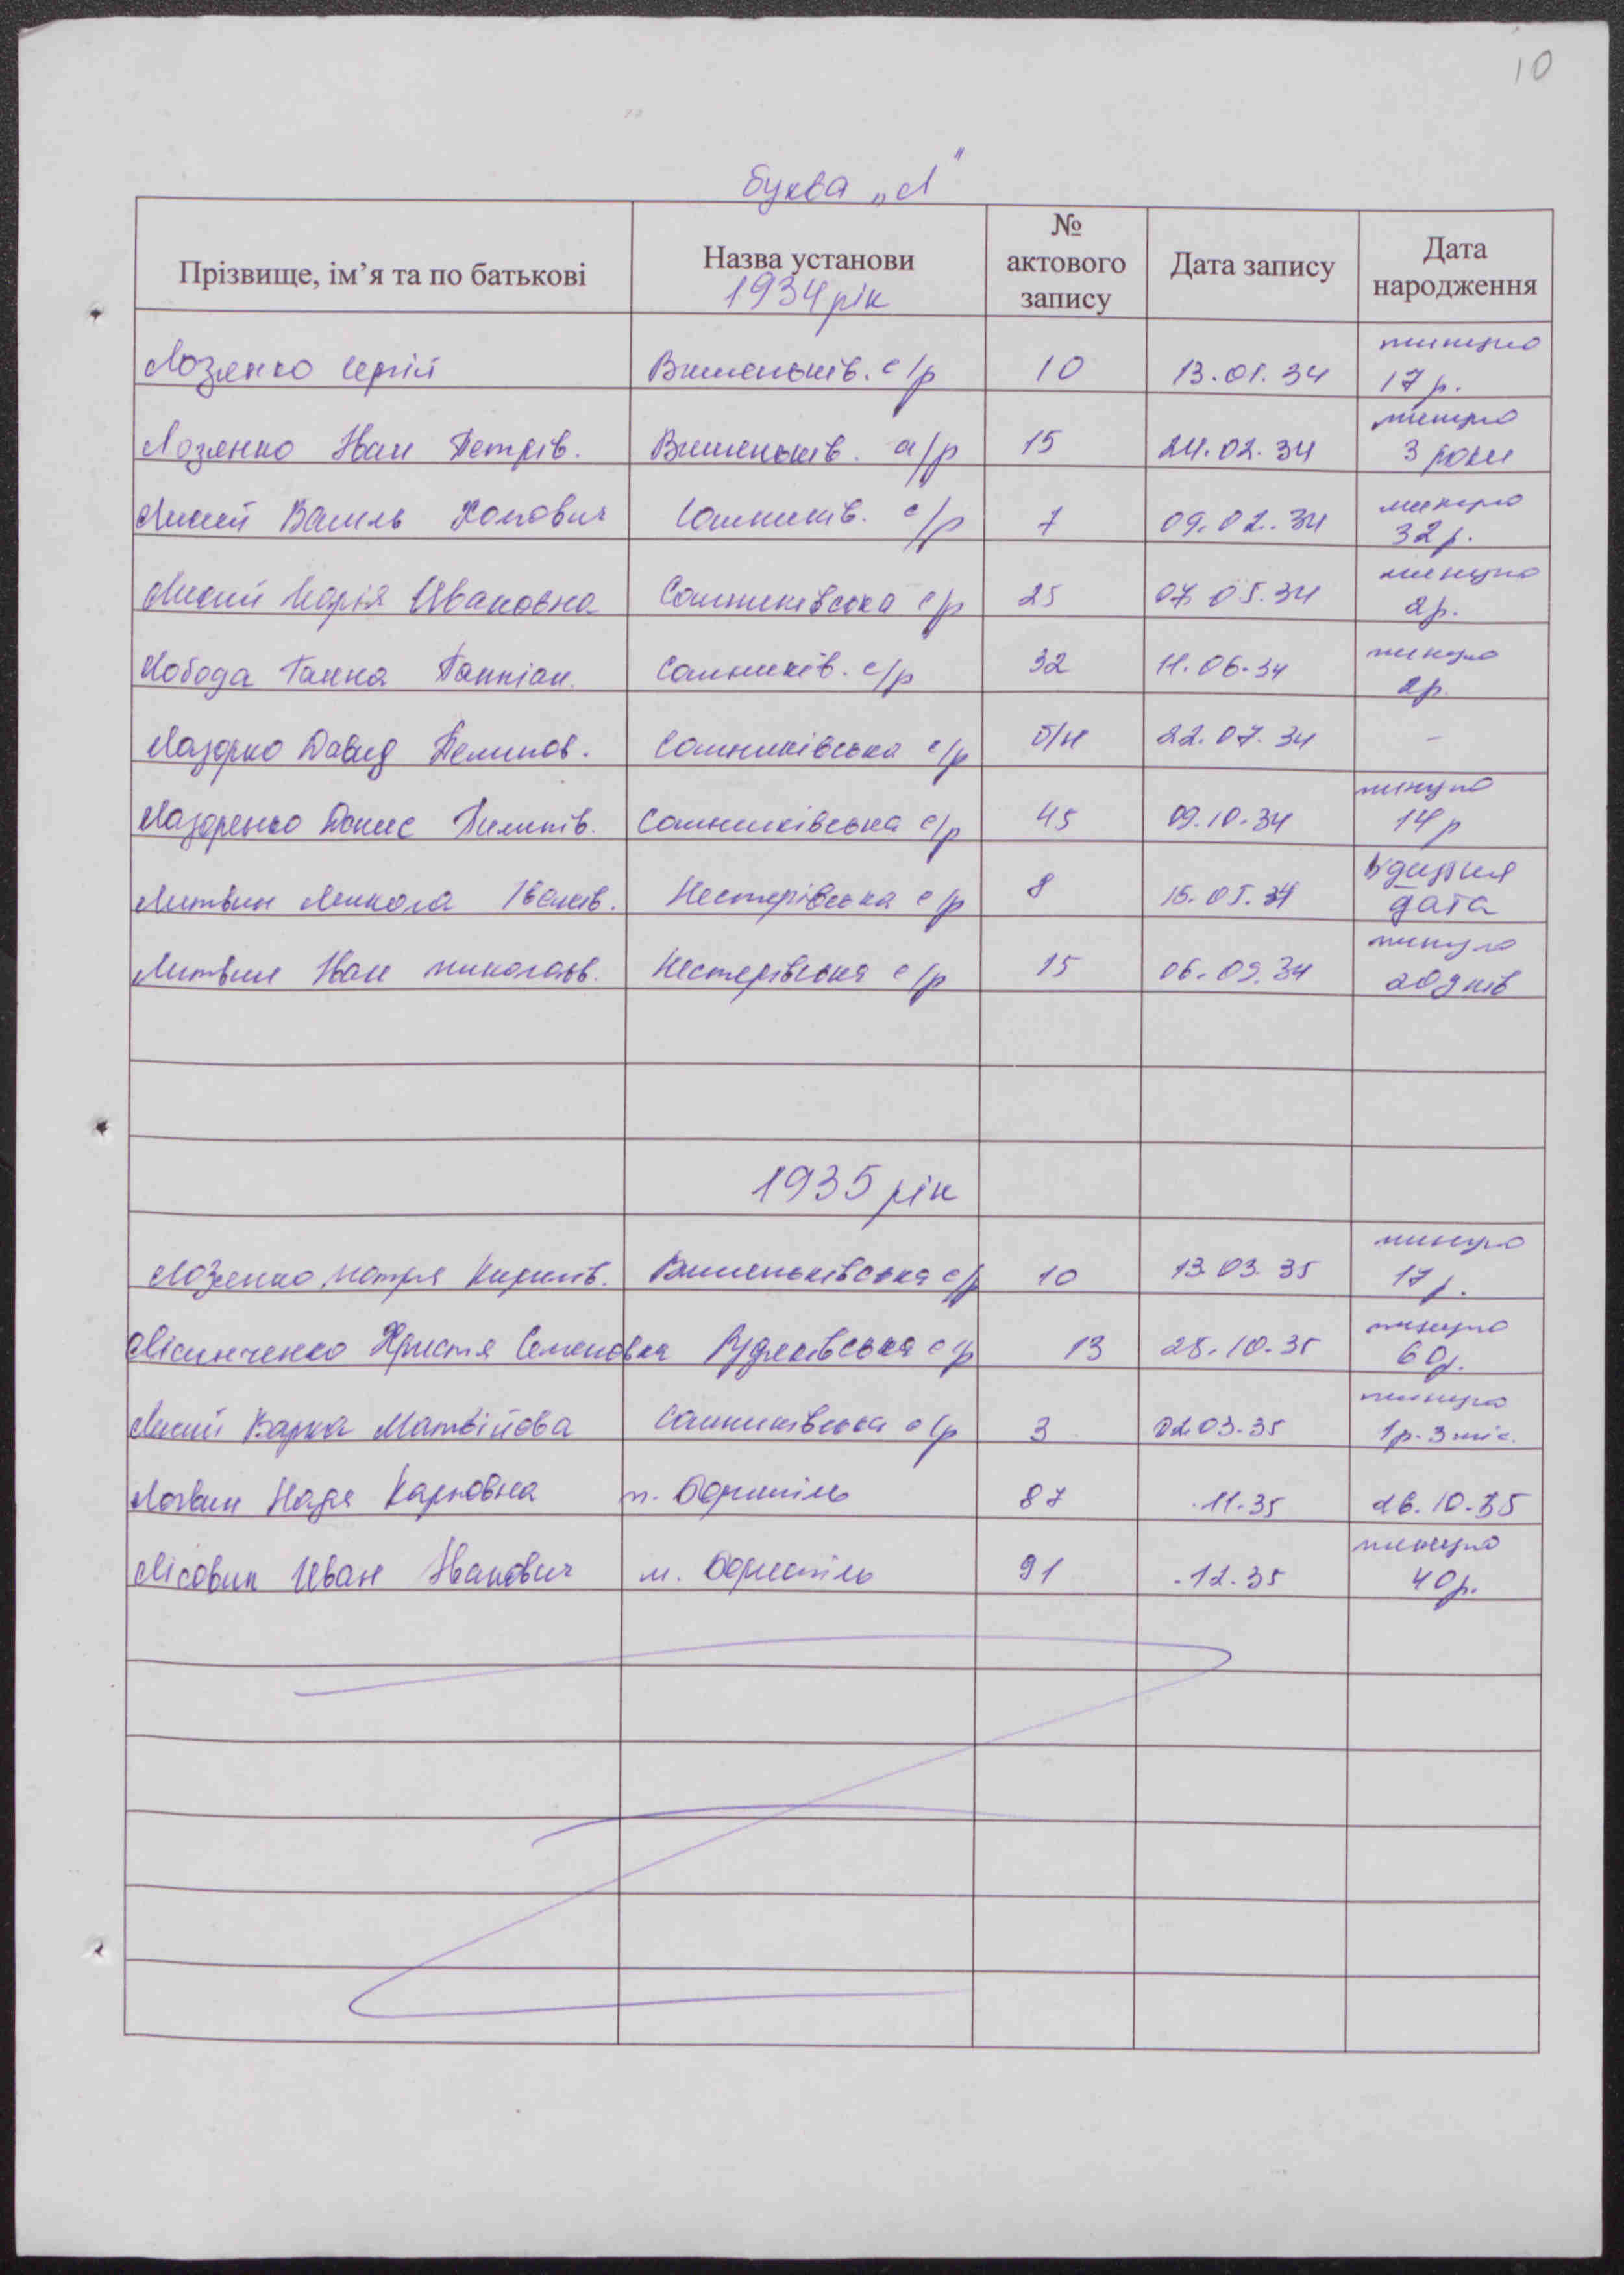 10
буква „Л"
Прізвище, ім'я та по батькові Назва установи 1934 рік № актового запису Дата запису Дата народження
Лозенко Сергій Вишеньків. с/р 10 13.01.34 минуло 17 р.
Лозенко Іван Петрів. Вишеньків. с/р 15 24.02.34 минуло 3 роки
Лисий Василь Сошників. с/р 7 09.02.34 минуло 32 р.
Лисий Марія Ивановна Сошниківська с/р 25 07.05.34 минуло 2 р.
Лобода Ганна Сошників. с/р 32 11.06.34 минуло 2 р.
Лазорко Давид Пелипов. Сошниківська с/р б/н 22.07.34 -
Лазоренко Денис Пилипів. Сошниківська с/р 45 09.10.34 минуло 14 р
Литвин Микола Іванів. Нестерівська с/р 8 15.05.34 дата
Литвин Іван Миколаєв. Нестерівська с/р 15 06.09.34 минуло 20 днів
1935 рік
Лозенко Мотря Кирилів. Вишеньківська с/р 10 13.03.35 минуло 17 р.
Христя Семеновна Рудяківська с/р 13 28.10.35 минуло 60 р.
Лисий Варка Матвійова Сошниківська с/р 3 02.03.35 минуло 1 р. 3 міс.
Логвин Надя Карповна м. Бориспіль 87 .11.35 26.10.35
Лісовик Иван Іванович м. Бориспіль 91 .12.35 минуло 40 р.